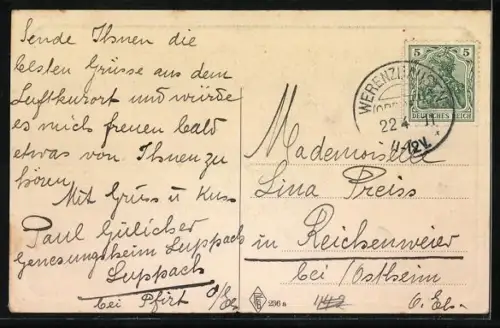 Sende Ihnen die
besten Grüsse aus dem
Luftkurort und würde
es mich freuen bald
etwas von Ihnen zu
hören.
Mit Gruss u Kuss
Paul Gülicher
Genesungsheim Luppach
Luppach
bei Pfirt O/Els.
5 5
DEUTSCHES REICH
WERENZHAUSEN
22.4. 11
11-12V.
Mademoiselle
Lina Preiss
in Reichenweier
bei /Ostheim
O. Els-
236 a